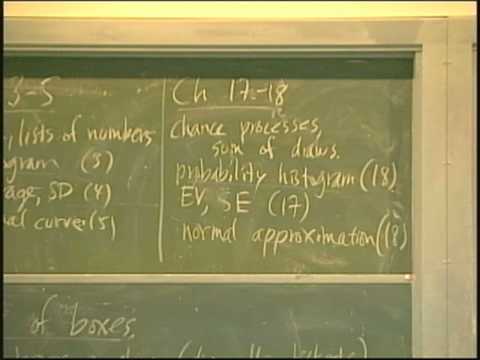 3-5
lists of numbers
ogram (3)
age, SD (4)
al curve (5)
Ch 17-18
chance processes,
sum of draws.
probability histogram (18)
EV, SE (17)
normal approximation (18)
of boxes